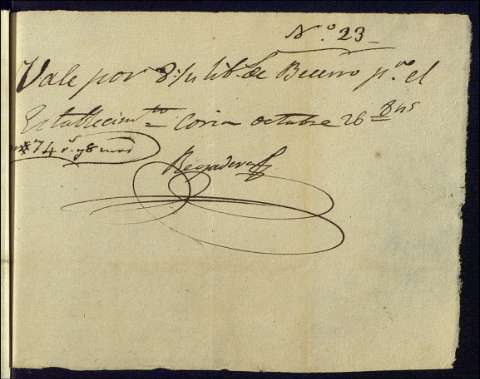 N.º 23
Vale por 8 lib.s de Becerro p.a el
Establecim.to Coria octubre 26 de
74 r.s y 8 mrs
Regadera